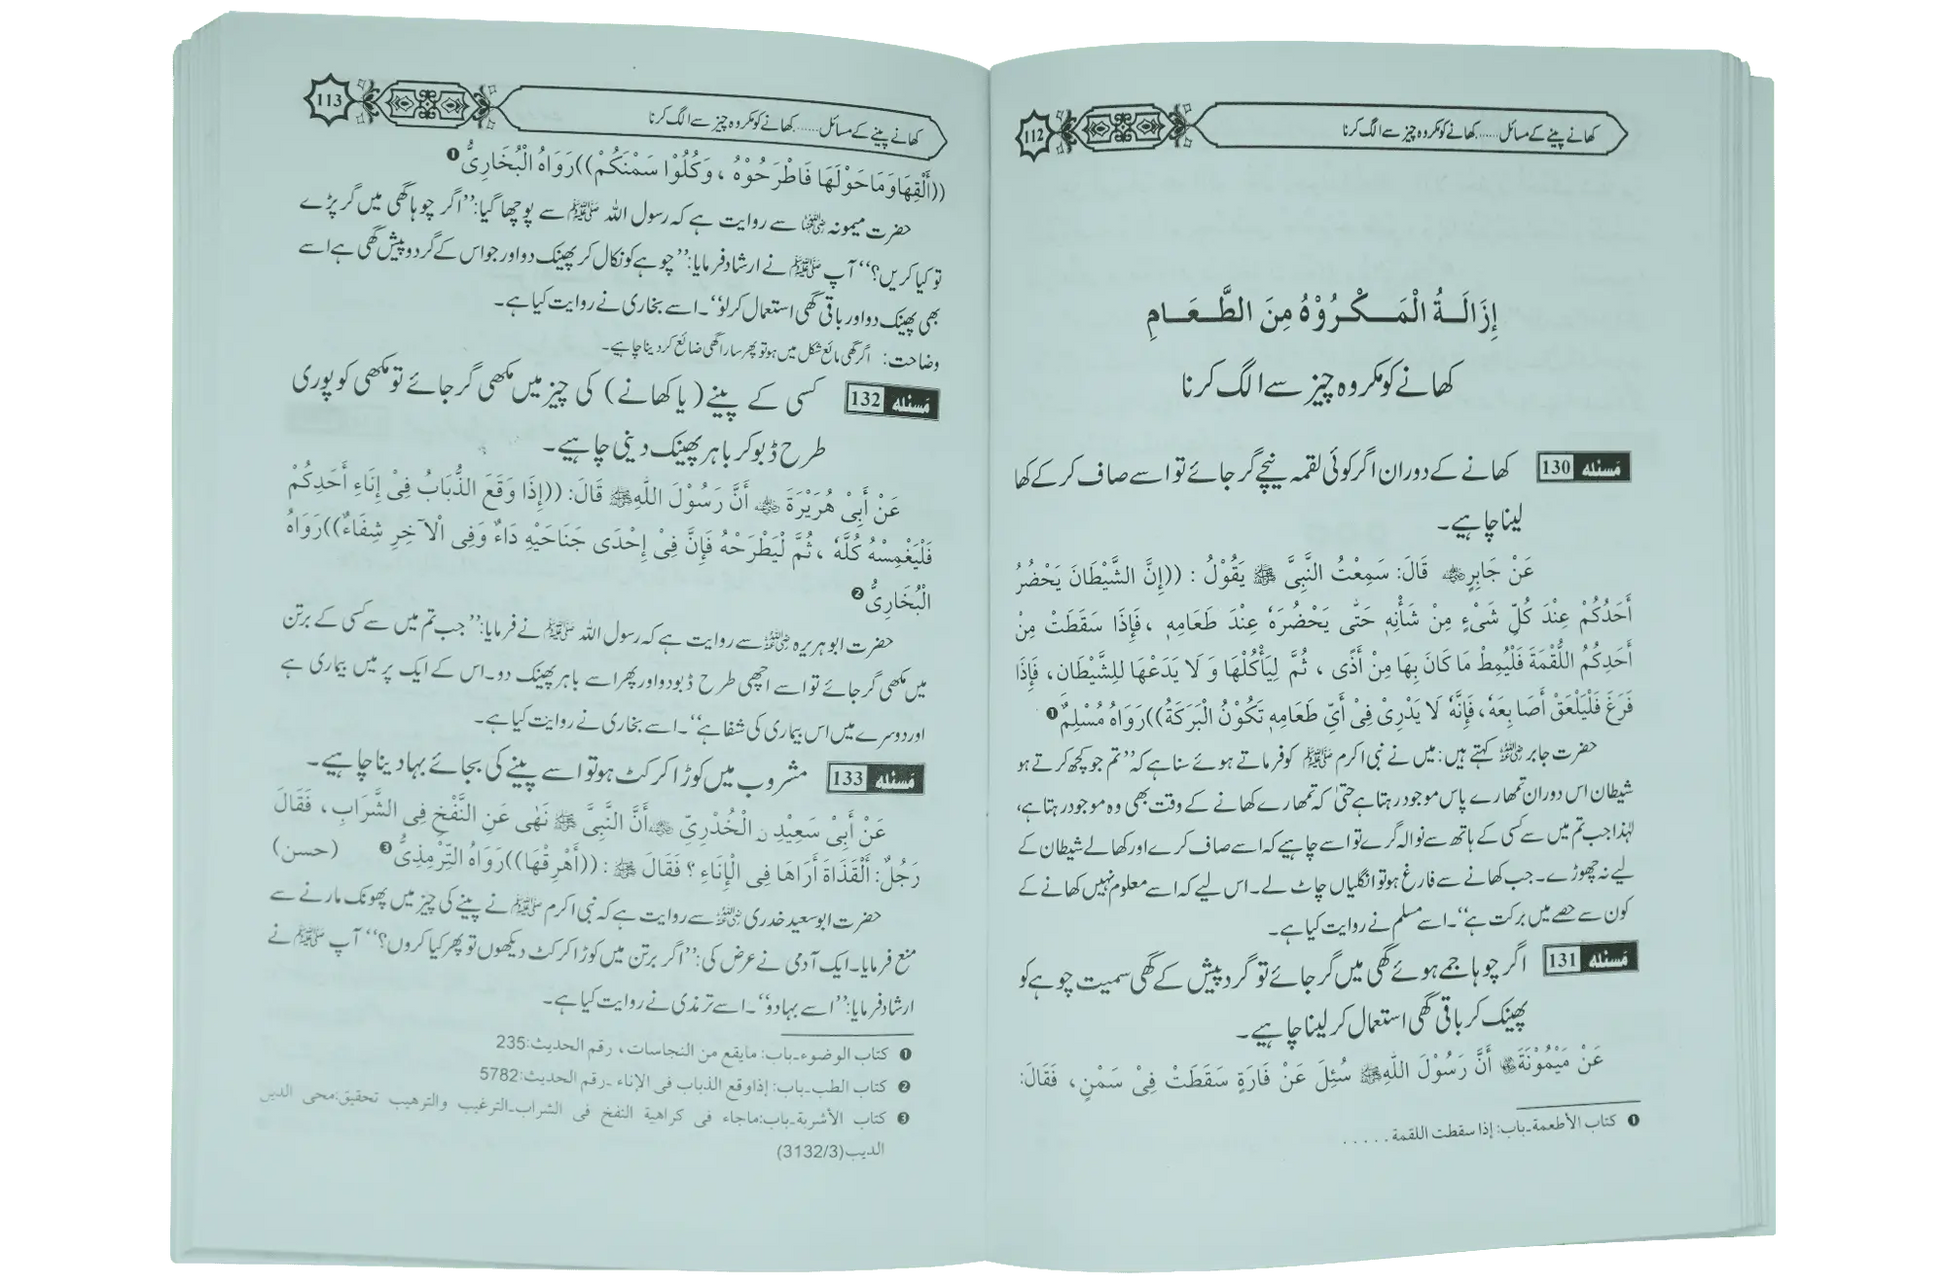 کھانے پینے کے مسائل...... کھانے کو مکروہ چیز سے الگ کرنا
112
إِزَالَـةُ الْمَـكْـرُوْهُ مِنَ الطَّـعَـامِ
کھانے کو مکروہ چیز سے الگ کرنا
مَسئله 130 کھانے کے دوران اگر کوئی لقمہ نیچے گر جائے تو اسے صاف کر کے کھا
لینا چاہیے۔
عَنْ جَابِرٍ ﷛ قَالَ: سَمِعْتُ النَّبِيَّ ﷺ يَقُوْلُ : ((إِنَّ الشَّيْطَانَ يَحْضُرُ
أَحَدُكُمْ عِنْدَ كُلِّ شَيْءٍ مِنْ شَأْنِهِ حَتّٰى يَحْضُرَهُ عِنْدَ طَعَامِهِ ، فَإِذَا سَقَطَتْ مِنْ
أَحَدِكُمُ اللُّقْمَةَ فَلْيُمِطْ مَا كَانَ بِهَا مِنْ أَذًى ، ثُمَّ لِيَأْكُلْهَا وَ لَا يَدَعْهَا لِلشَّيْطَانِ، فَإِذَا
فَرَغَ فَلْيَلْعَقْ أَصَابِعَهُ، فَإِنَّهُ لَا يَدْرِيْ فِيْ أَيِّ طَعَامِهِ تَكُوْنُ الْبَرَكَةُ)) رَوَاهُ مُسْلِمٌ ❶
حضرت جابر رضی اللہ عنہ کہتے ہیں: میں نے نبی اکرم ﷺ کو فرماتے ہوئے سنا ہے کہ ’’تم جو کچھ کرتے ہو
شیطان اس دوران تمھارے پاس موجود رہتا ہے حتیٰ کہ تمھارے کھانے کے وقت بھی وہ موجود رہتا ہے،
لہٰذا جب تم میں سے کسی کے ہاتھ سے نوالہ گرے تو اسے چاہیے کہ اسے صاف کرے اور کھا لے شیطان کے
لیے نہ چھوڑے۔ جب کھانے سے فارغ ہو تو انگلیاں چاٹ لے۔ اس لیے کہ اسے معلوم نہیں کھانے کے
کون سے حصے میں برکت ہے‘‘۔ اسے مسلم نے روایت کیا ہے۔
مَسئله 131 اگر چوہا جمے ہوئے گھی میں گر جائے تو گرد پیش کے گھی سمیت چوہے کو
پھینک کر باقی گھی استعمال کر لینا چاہیے۔
عَنْ مَيْمُوْنَةَ أَنَّ رَسُوْلَ اللّٰهِ ﷺ سُئِلَ عَنْ فَارَةٍ سَقَطَتْ فِيْ سَمْنٍ، فَقَالَ:
❶ كتاب الأطعمة۔باب: إذا سقطت اللقمة . . . . .
کھانے پینے کے مسائل...... کھانے کو مکروہ چیز سے الگ کرنا
113
((أَلْقِهَا وَمَا حَوْلَهَا فَاطْرَحُوْهُ ، وَكُلُوْا سَمْنَكُمْ)) رَوَاهُ الْبُخَارِيُّ ❶
حضرت میمونہ رضی اللہ عنہا سے روایت ہے کہ رسول اللہ ﷺ سے پوچھا گیا: ’’اگر چوہا گھی میں گر پڑے
تو کیا کریں؟‘‘ آپ ﷺ نے ارشاد فرمایا: ’’چوہے کو نکال کر پھینک دو اور جو اس کے گرد و پیش گھی ہے اسے
بھی پھینک دو اور باقی گھی استعمال کر لو‘‘۔ اسے بخاری نے روایت کیا ہے۔
وضاحت: اگر گھی مائع شکل میں ہو تو پھر سارا گھی ضائع کر دینا چاہیے۔
مَسئله 132 کسی کے پینے (یا کھانے) کی چیز میں مکھی گر جائے تو مکھی کو پوری
طرح ڈبو کر باہر پھینک دینی چاہیے۔
عَنْ أَبِيْ هُرَيْرَةَ ﷛ أَنَّ رَسُوْلَ اللّٰهِ ﷺ قَالَ: ((إِذَا وَقَعَ الذُّبَابُ فِيْ إِنَاءِ أَحَدِكُمْ
فَلْيَغْمِسْهُ كُلَّهُ ، ثُمَّ لْيَطْرَحْهُ فَإِنَّ فِيْ إِحْدَى جَنَاحَيْهِ دَاءٌ وَفِي الْآخِرِ شِفَاءٌ)) رَوَاهُ
الْبُخَارِيُّ ❷
حضرت ابو ہریرہ رضی اللہ عنہ سے روایت ہے کہ رسول اللہ ﷺ نے فرمایا: ’’جب تم میں سے کسی کے برتن
میں مکھی گر جائے تو اسے اچھی طرح ڈبو دو اور پھر اسے باہر پھینک دو۔ اس کے ایک پر میں بیماری ہے
اور دوسرے میں اس بیماری کی شفا ہے‘‘۔ اسے بخاری نے روایت کیا ہے۔
مَسئله 133 مشروب میں کوڑا کرکٹ ہو تو اسے پینے کی بجائے بہا دینا چاہیے۔
عَنْ أَبِيْ سَعِيْدِ نِ الْخُدْرِيِّ ﷛ أَنَّ النَّبِيَّ ﷺ نَهٰى عَنِ النَّفْخِ فِي الشَّرَابِ ، فَقَالَ
رَجُلٌ: أَلْقَذَاةَ أَرَاهَا فِي الْإِنَاءِ ؟ فَقَالَ ﷺ : ((أَهْرِقْهَا)) رَوَاهُ التِّرْمِذِيُّ ❸ (حسن)
حضرت ابو سعید خدری رضی اللہ عنہ سے روایت ہے کہ نبی اکرم ﷺ نے پینے کی چیز میں پھونک مارنے سے
منع فرمایا۔ ایک آدمی نے عرض کی: ’’اگر برتن میں کوڑا کرکٹ دیکھوں تو پھر کیا کروں؟‘‘ آپ ﷺ نے
ارشاد فرمایا: ’’اسے بہا دو‘‘۔ اسے ترمذی نے روایت کیا ہے۔
❶ كتاب الوضوء۔باب: مايقع من النجاسات، رقم الحديث:235
❷ كتاب الطب۔باب: إذاوقع الذباب في الإناء ۔رقم الحديث:5782
❸ كتاب الأشربة۔باب:ماجاء في كراهية النفخ في الشراب۔الترغيب والترهيب تحقيق:محي الدين
الديب(3132/3)